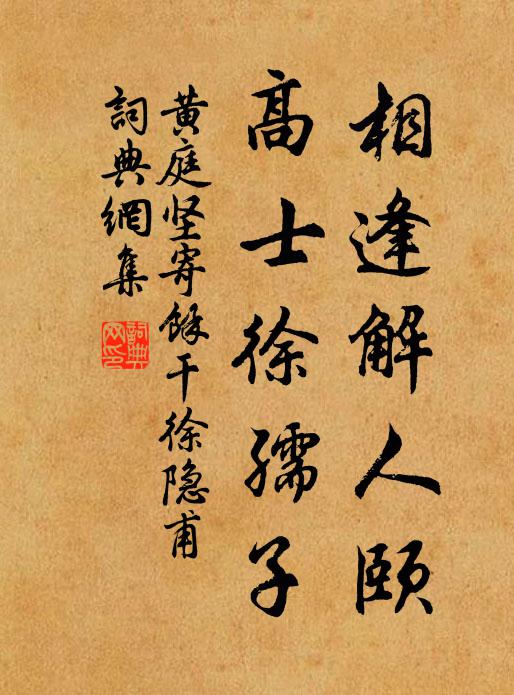 相逢解人颐
高士徐孺子
黄庭坚寄馀干徐隐甫
詞典網集
詞典网印